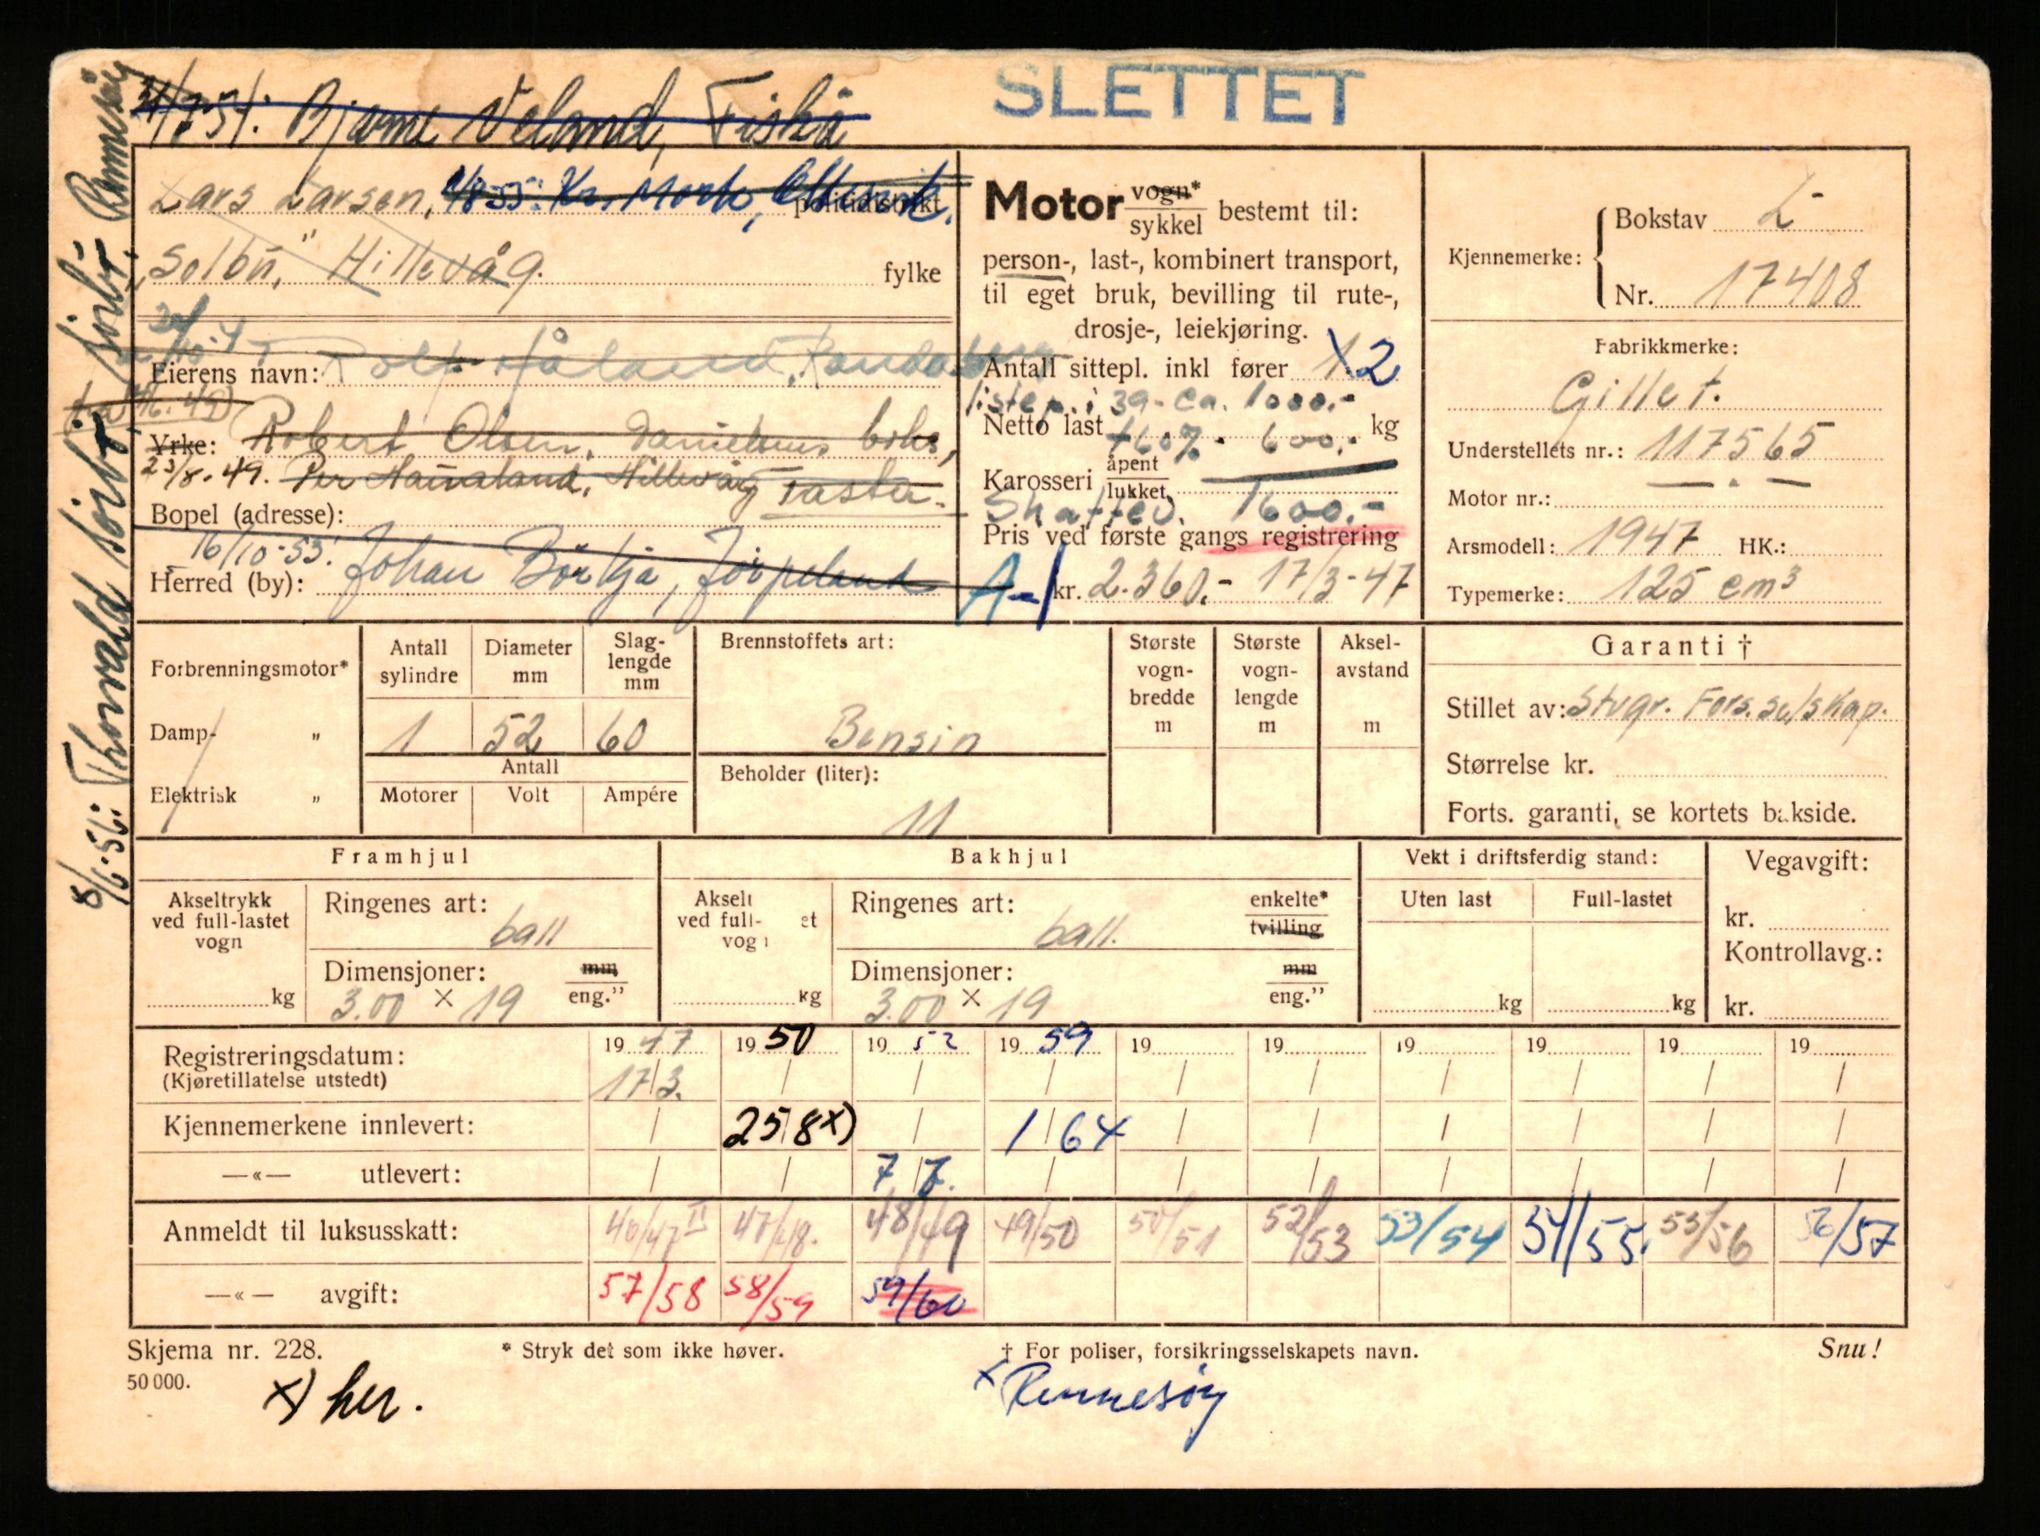 SLETTET
31/7-54: Bjarne Veland, Fiskå
Lars Larsen, 1/8-55: Kr. Mork, politidistrikt
"Solbu," Hillevåg. fylke
Eierens navn: Rolf Håland, Randaberg
Yrke: Robert Olsen, Danielsens bohs,
23/8-49. Per Hauualand, Hillevåg
Bopel (adresse):
16/10-53: Johan Börkja, Jörpeland
Herred (by):
8/6-56: Thorvald Sørbø, Sørbø, Rennesøy
Motor vogn* sykkel bestemt til:
person-, last-, kombinert transport,
til eget bruk, bevilling til rute-,
drosje-, leiekjøring.
Antall sittepl. inkl fører 1 2
listep. i 39 - ca. 1000.-
Netto last kg
+60% - 600.-
Karosseri åpent lukket
Skatteв. 1600.-
Pris ved første gangs registrering
A-1 kr. 2.360.- 17/3-47
Kjennemerke: Bokstav L-
Nr. 17408
Fabrikkmerke:
Gillet.
Understellets nr.: 117565
Motor nr.: — . —
Årsmodell: 1947 HK.:
Typemerke: 125 cm3
Forbrenningsmotor*
Damp- „
Elektrisk „
Antall sylindre Diameter mm Slaglengde mm
1 52 60
Antall
Motorer Volt Ampére
Brennstoffets art:
Bensin
Beholder (liter):
11
Største vognbredde m
Største vognlengde m
Akselavstand m
Garanti †
Stillet av: Stvgr. Fors.selskap.
Størrelse kr.
Forts. garanti, se kortets bakside.
Framhjul
Akseltrykk ved full-lastet vogn
kg
Ringenes art: ball
Dimensjoner: mm eng."
3.00 × 19
Bakhjul
Akselt ved full- et vogn
kg
Ringenes art: ball. enkelte* tvilling
Dimensjoner: mm eng."
3.00 × 19
Vekt i driftsferdig stand:
Uten last Full-lastet
kg kg
Vegavgift:
kr.
Kontrollavg.:
kr.
Registreringsdatum: 19 47 19 50 19 52 19 59 19 19 19 19 19 19
(Kjøretillatelse utstedt) 17/3. / / / / / / / / /
Kjennemerkene innlevert: / 25/8 x) / 1/64 / / / / / /
—«— utlevert: / / 7/7. / / / / / / /
Anmeldt til luksusskatt: 46/47 II 47/48. 48/49 49/50 50/51 52/53 53/54 54/55. 55/56 56/57
—«— avgift: 57/58 58/59 59/60
Skjema nr. 228. * Stryk det som ikke høver. † For poliser, forsikringsselskapets navn. Snu!
50 000.
x) her. x Rennesøy